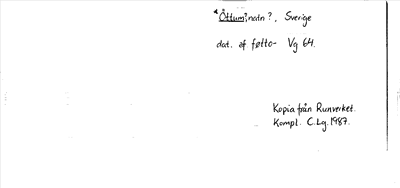 *Öttuminatn?, Sverige
dat. af føtto- Vg 64.
Kopia från Runverket.
Kompl. C.Lg. 1987.